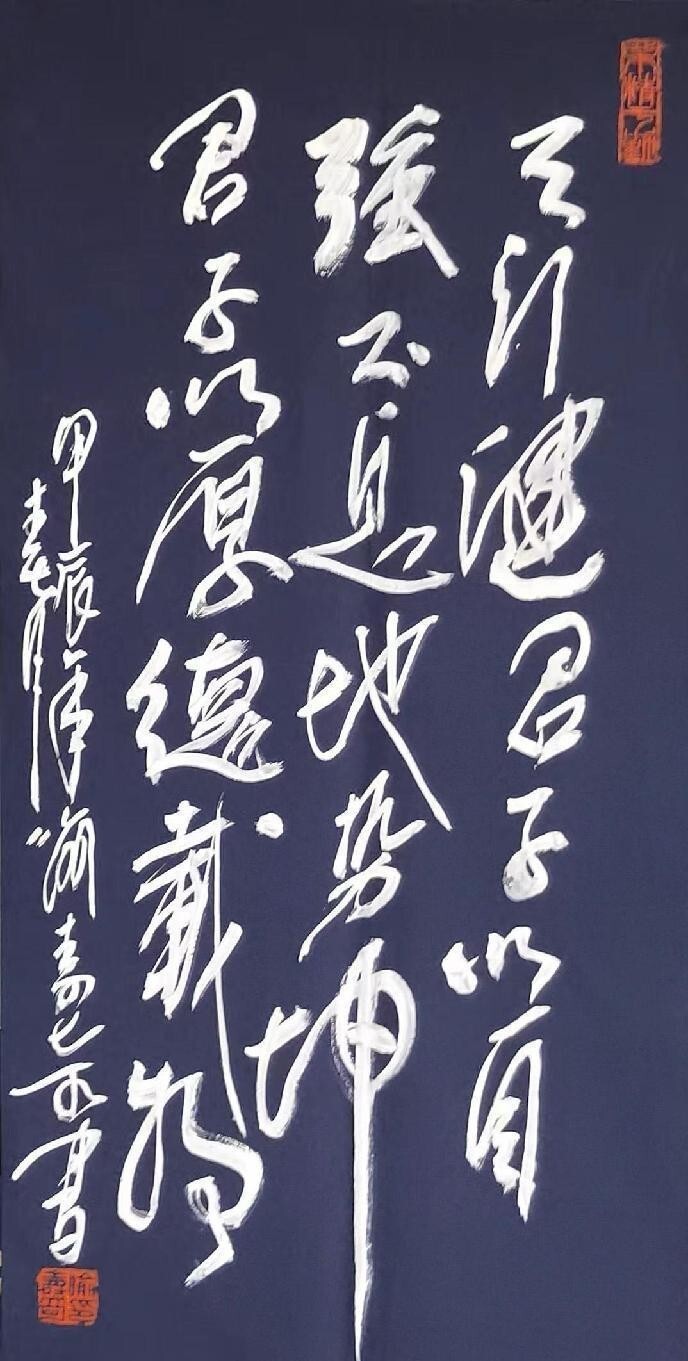 天行健君子以自
强不息地势坤
君子以厚德载物
甲辰年深海寿七不书
春月